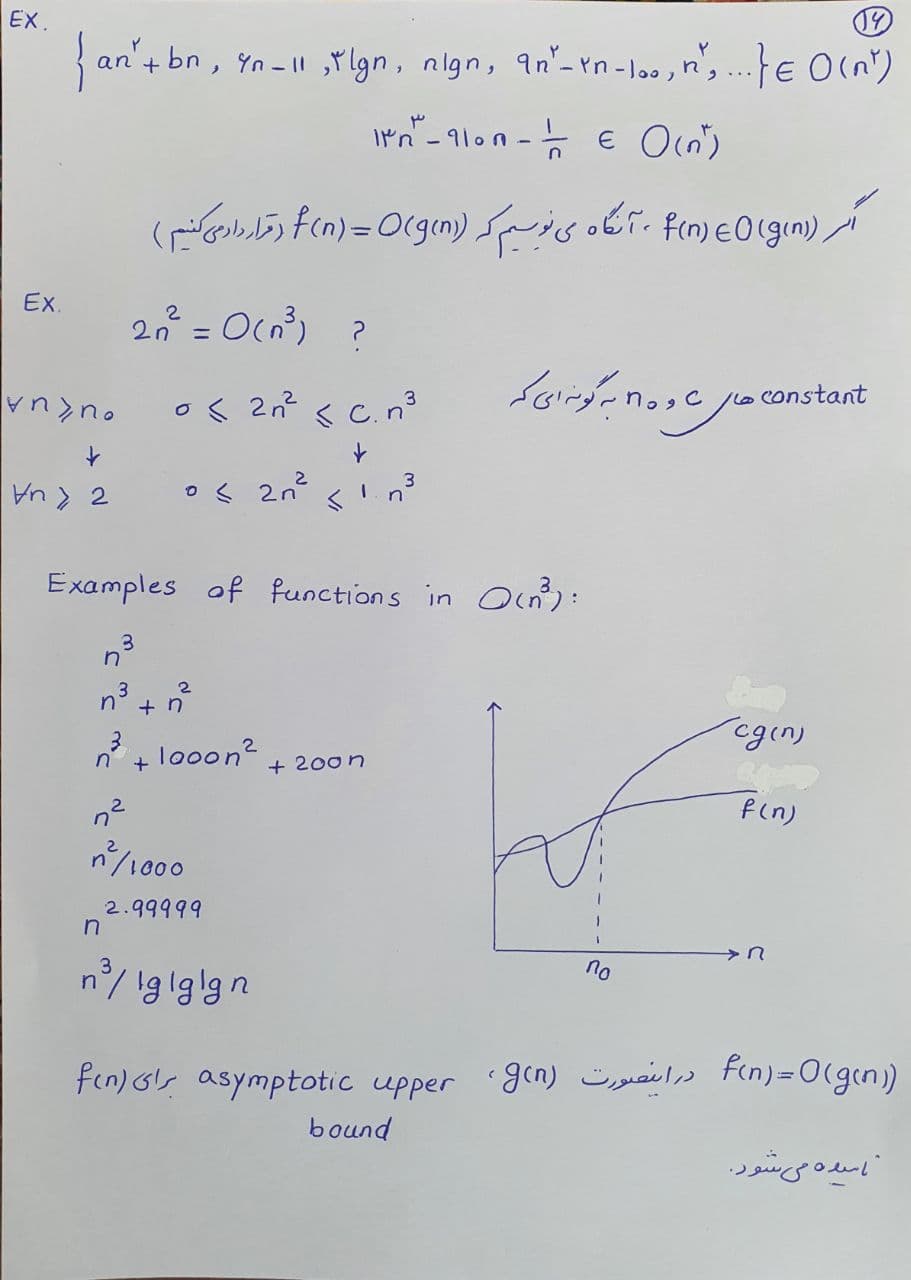 EX.
۱۴
{ an² + bn , ۶n − ۱۱ , ۳lgn , nlgn , ۹n² − ۲n − ۱۰۰ , n² , ... } ∈ O(n²)
۱۳n³ − ۹۱۰n − ۱/n ∈ O(n³)
اگر f(n) ∈ O(g(n)) ، آنگاه می‌نویسیم که f(n) = O(g(n)) (قرارداد می‌کنیم)
EX.
2n² = O(n³) ?
constant های c و n₀ به گونه‌ای که
∀n ⩾ n₀ 0 ⩽ 2n² ⩽ c. n³
↓ ↓
∀n ⩾ 2 0 ⩽ 2n² ⩽ 1. n³
Examples of functions in O(n³):
n³
n³ + n²
n³ + 1000n² + 200n
n²
n²/1000
n^2.99999
n³/ lglglg n
cg(n)
f(n)
n
n₀
f(n) = O(g(n)) دراینصورت g(n) ، asymptotic upper bound برای f(n)
نامیده می‌شود.